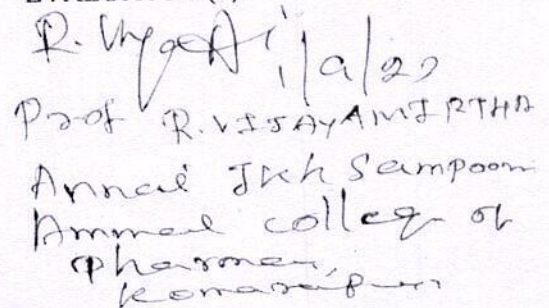 R. Vijay
1/9/22
Prof R. VIJAYAMIRTHA
Annai JKK Sampoorn
Ammal college of
Pharmacy,
Komarapu